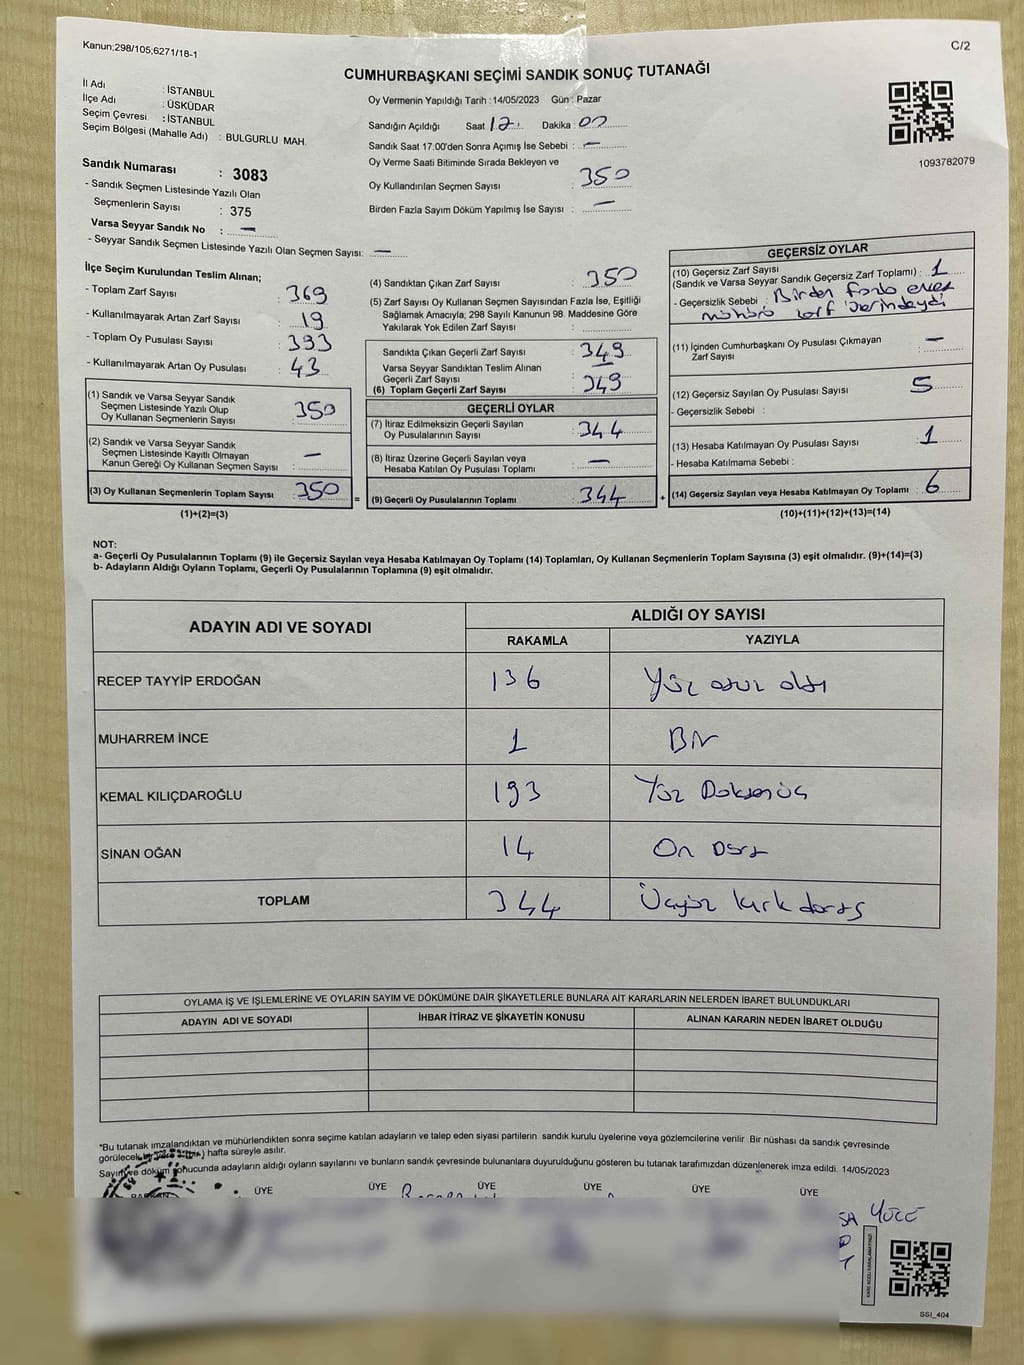 Kanun;298/105;6271/18-1
C/2
CUMHURBAŞKANI SEÇİMİ SANDIK SONUÇ TUTANAĞI
İl Adı : İSTANBUL
İlçe Adı : ÜSKÜDAR
Seçim Çevresi : İSTANBUL
Seçim Bölgesi (Mahalle Adı) : BULGURLU MAH.
Oy Vermenin Yapıldığı Tarih : 14/05/2023 Gün : Pazar
Sandığın Açıldığı Saat 17 Dakika : 00
Sandık Saat 17:00'den Sonra Açımış İse Sebebi : —
Oy Verme Saati Bitiminde Sırada Bekleyen ve
Oy Kullandırılan Seçmen Sayısı : 350
Birden Fazla Sayım Döküm Yapılmış İse Sayısı : —
1093782079
Sandık Numarası : 3083
- Sandık Seçmen Listesinde Yazılı Olan
Seçmenlerin Sayısı : 375
Varsa Seyyar Sandık No : —
- Seyyar Sandık Seçmen Listesinde Yazılı Olan Seçmen Sayısı: —
İlçe Seçim Kurulundan Teslim Alınan;
- Toplam Zarf Sayısı : 369
- Kullanılmayarak Artan Zarf Sayısı : 19
- Toplam Oy Pusulası Sayısı : 393
- Kullanılmayarak Artan Oy Pusulası : 43
(1) Sandık ve Varsa Seyyar Sandık
Seçmen Listesinde Yazılı Olup
Oy Kullanan Seçmenlerin Sayısı : 350
(2) Sandık ve Varsa Seyyar Sandık
Seçmen Listesinde Kayıtlı Olmayan
Kanun Gereği Oy Kullanan Seçmen Sayısı : —
(3) Oy Kullanan Seçmenlerin Toplam Sayısı : 350 =
(1)+(2)=(3)
(4) Sandıktan Çıkan Zarf Sayısı : 350
(5) Zarf Sayısı Oy Kullanan Seçmen Sayısından Fazla İse, Eşitliği
Sağlamak Amacıyla; 298 Sayılı Kanunun 98. Maddesine Göre
Yakılarak Yok Edilen Zarf Sayısı :
Sandıkta Çıkan Geçerli Zarf Sayısı : 349
Varsa Seyyar Sandıktan Teslim Alınan
Geçerli Zarf Sayısı
(6) Toplam Geçerli Zarf Sayısı : 349
GEÇERLİ OYLAR
(7) İtiraz Edilmeksizin Geçerli Sayılan
Oy Pusulalarının Sayısı : 344
(8) İtiraz Üzerine Geçerli Sayılan veya
Hesaba Katılan Oy Pusulası Toplamı : —
(9) Geçerli Oy Pusulalarının Toplamı : 344 +
GEÇERSİZ OYLAR
(10) Geçersiz Zarf Sayısı
(Sandık ve Varsa Seyyar Sandık Geçersiz Zarf Toplamı) : 1
- Geçersizlik Sebebi : Birden fazla evet
mührü zarf üzerindeydi
(11) İçinden Cumhurbaşkanı Oy Pusulası Çıkmayan
Zarf Sayısı : —
(12) Geçersiz Sayılan Oy Pusulası Sayısı : 5
- Geçersizlik Sebebi :
(13) Hesaba Katılmayan Oy Pusulası Sayısı : 1
- Hesaba Katılmama Sebebi :
(14) Geçersiz Sayılan veya Hesaba Katılmayan Oy Toplamı : 6
(10)+(11)+(12)+(13)=(14)
NOT:
a- Geçerli Oy Pusulalarının Toplamı (9) ile Geçersiz Sayılan veya Hesaba Katılmayan Oy Toplamı (14) Toplamları, Oy Kullanan Seçmenlerin Toplam Sayısına (3) eşit olmalıdır. (9)+(14)=(3)
b- Adayların Aldığı Oyların Toplamı, Geçerli Oy Pusulalarının Toplamına (9) eşit olmalıdır.
ADAYIN ADI VE SOYADI
ALDIĞI OY SAYISI
RAKAMLA YAZIYLA
RECEP TAYYİP ERDOĞAN 136 Yüz otuz altı
MUHARREM İNCE 1 Bir
KEMAL KILIÇDAROĞLU 193 Yüz Doksanüç
SİNAN OĞAN 14 On Dört
TOPLAM 344 Üçyüz kırk dört
OYLAMA İŞ VE İŞLEMLERİNE VE OYLARIN SAYIM VE DÖKÜMÜNE DAİR ŞİKAYETLERLE BUNLARA AİT KARARLARIN NELERDEN İBARET BULUNDUKLARI
ADAYIN ADI VE SOYADI İHBAR İTİRAZ VE ŞİKAYETİN KONUSU ALINAN KARARIN NEDEN İBARET OLDUĞU
*Bu tutanak imzalandıktan ve mühürlendikten sonra seçime katılan adayların ve talep eden siyasi partilerin sandık kurulu üyelerine veya gözlemcilerine verilir Bir nüshası da sandık çevresinde
görülecek hafta süreyle asılır.
Sayım ve döküm sonucunda adayların aldığı oyların sayılarını ve bunların sandık çevresinde bulunanlara duyurulduğunu gösteren bu tutanak tarafımızdan düzenlenerek imza edildi. 14/05/2023
ÜYE ÜYE ÜYE ÜYE ÜYE ÜYE
YÜCE
SSI_404